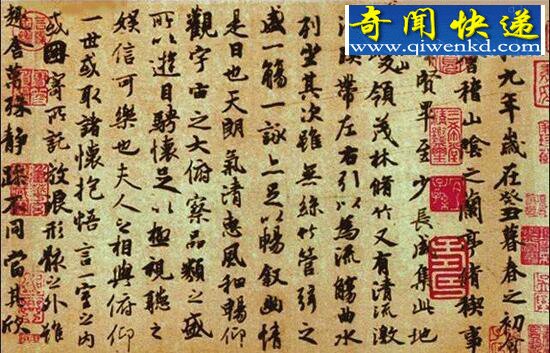 奇闻快递
www.qiwenkd.com
九年歲在癸丑暮春之初會
稽山陰之蘭亭脩禊事
賢畢至少長咸集此地
峻領茂林脩竹又有清流激
湍暎帶左右引以為流觴曲水
列坐其次雖無絲竹管弦之
盛一觴一詠亦足以暢敘幽情
是日也天朗氣清惠風和暢仰
觀宇宙之大俯察品類之盛
所以遊目騁懷足以極視聽之
娛信可樂也夫人之相與俯仰
一世或取諸懷抱悟言一室之內
或因寄所託放浪形骸之外雖
趣舍萬殊靜躁不同當其欣